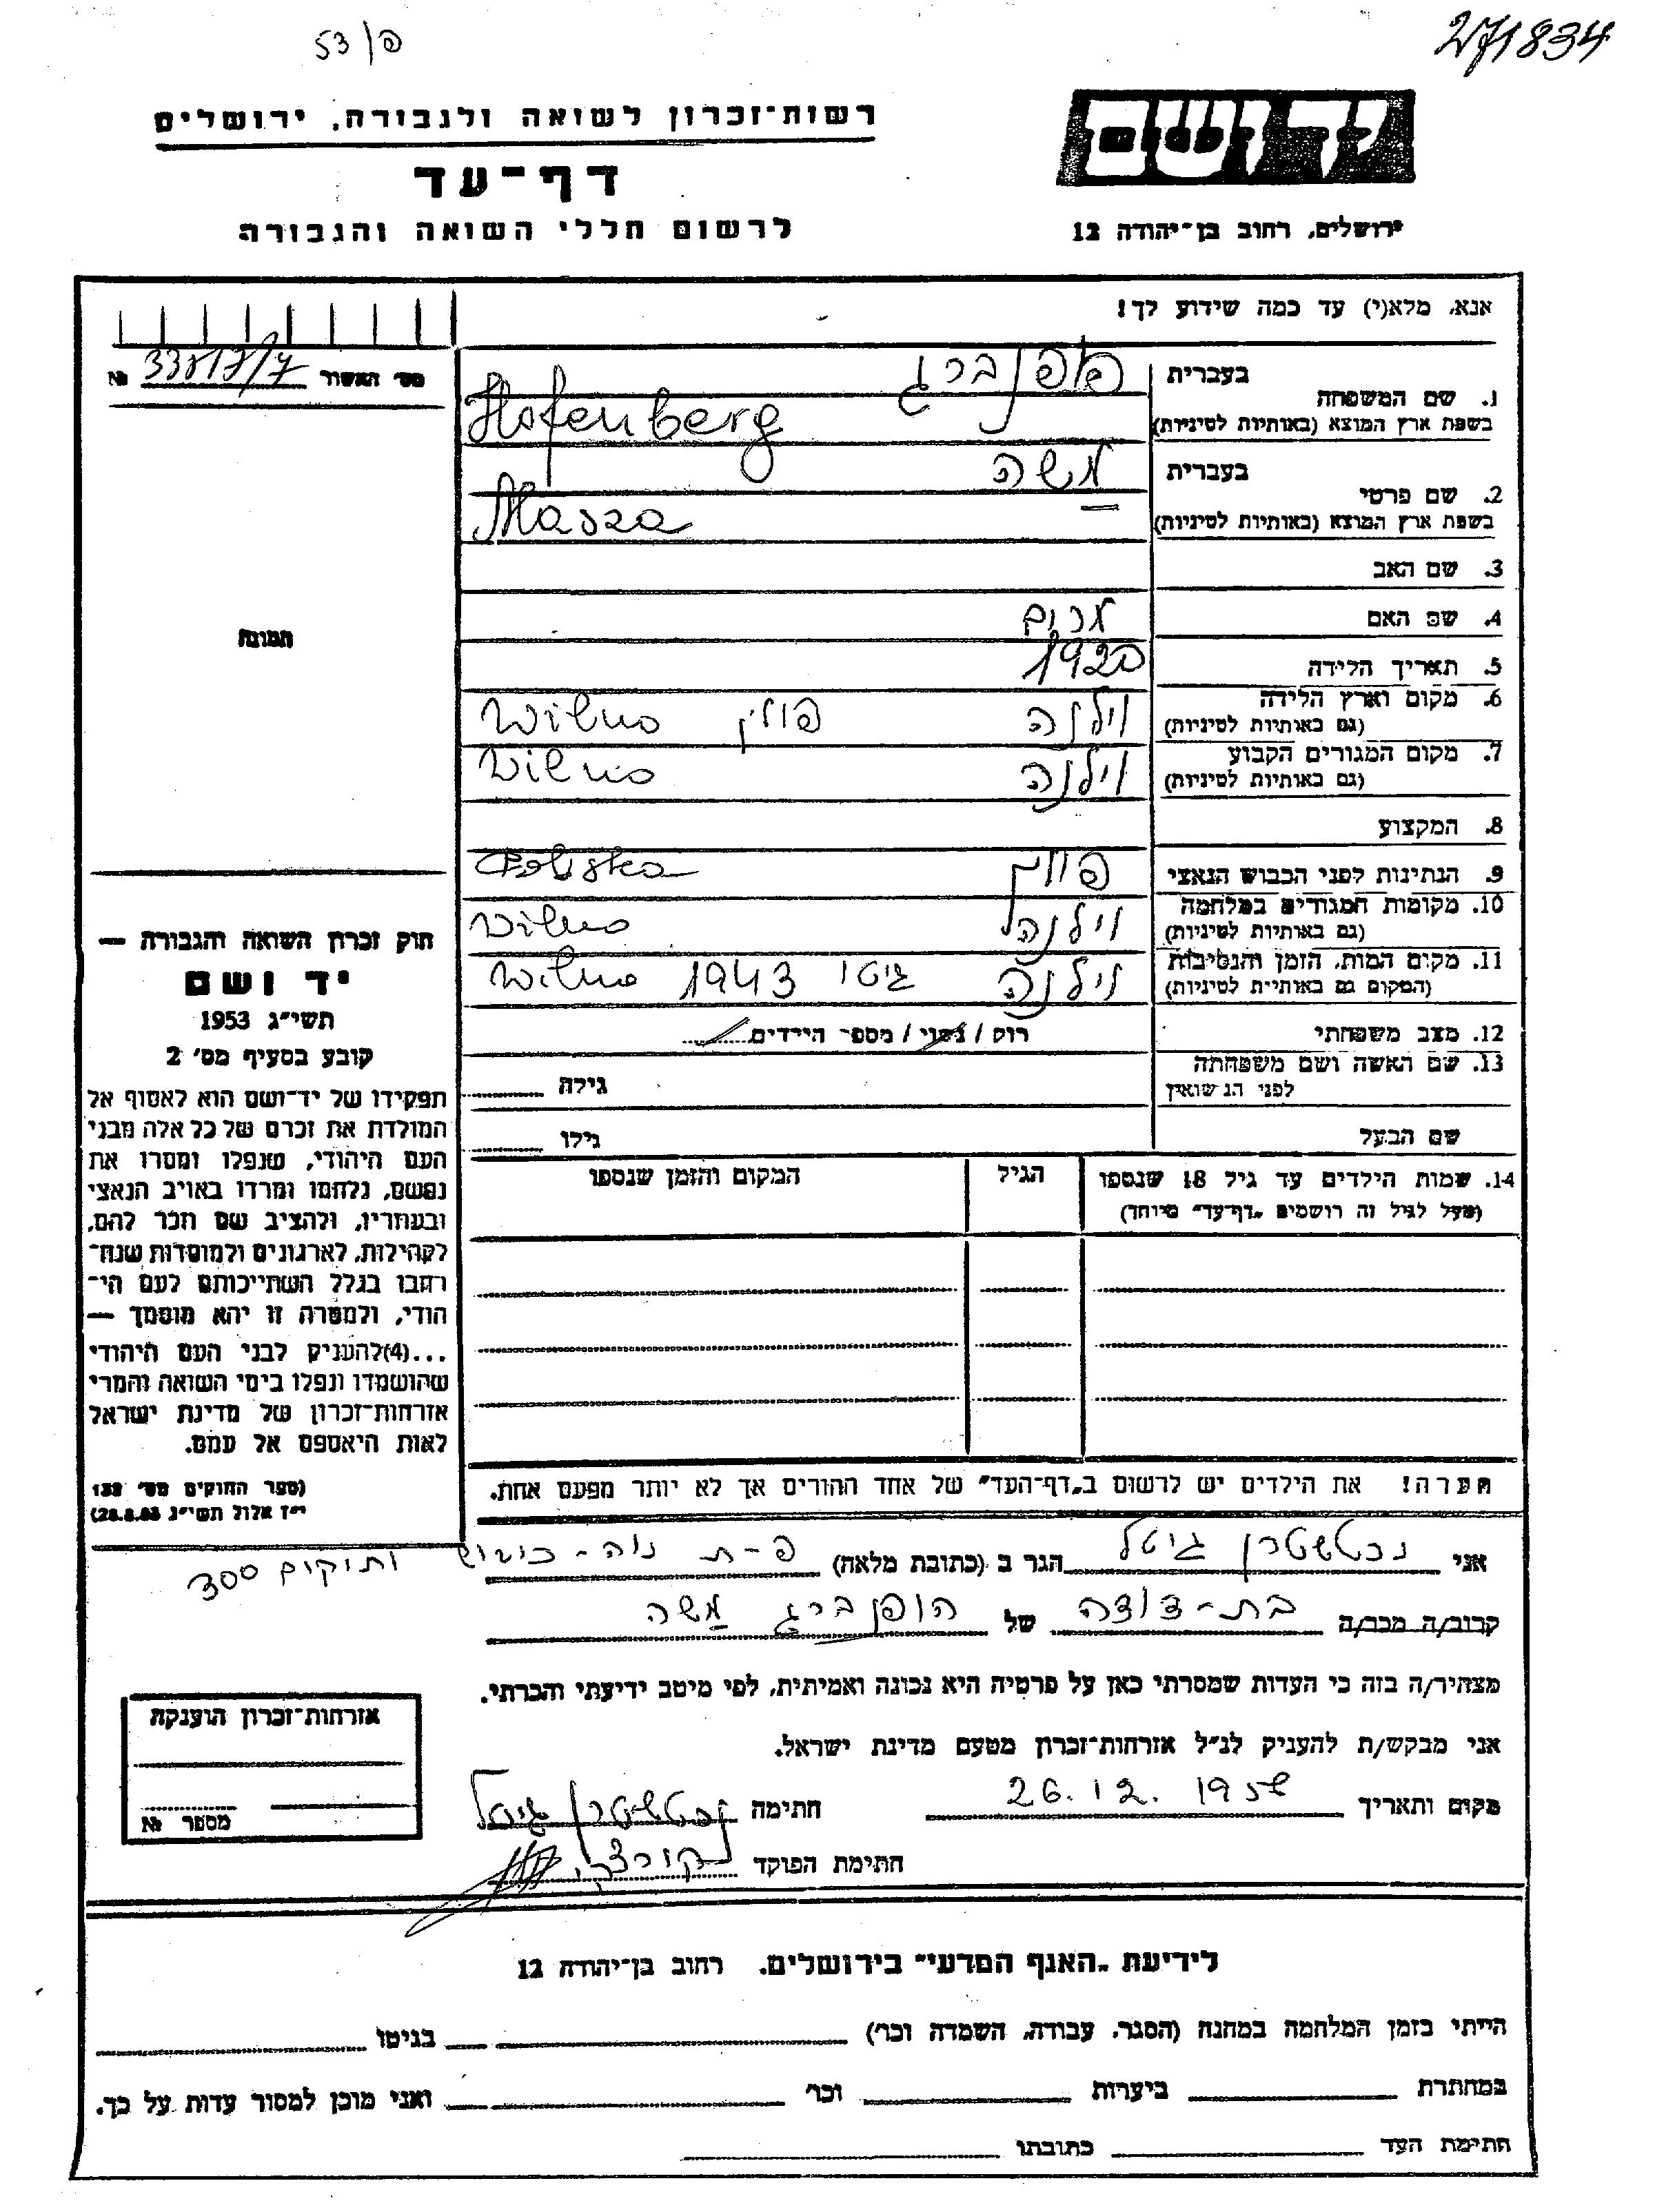 53/פ
271834
יד ושם
ירושלים, רחוב בן-יהודה 12
רשות-זכרון לשואה ולגבורה, ירושלים
דף-עד
לרשום חללי השואה והגבורה
אנא, מלא(י) עד כמה שידוע לך!
מס' האשור № 33817/7
תמונה
1. שם המשפחה בעברית הופנברג
בשפת ארץ המוצא (באותיות לטיניות) Hofenberg
2. שם פרטי בעברית משה
בשפת ארץ המוצא (באותיות לטיניות) Masza
3. שם האב
4. שם האם מרים
5. תאריך הלידה 1920
6. מקום וארץ הלידה (גם באותיות לטיניות) וילנה פולין Wilno
7. מקום המגורים הקבוע (גם באותיות לטיניות) וילנה Wilno
8. המקצוע
9. הנתינות לפני הכבוש הנאצי פולין Polska
10. מקומות המגורים במלחמה (גם באותיות לטיניות) וילנה Wilno
11. מקום המות, הזמן והנסיבות (המקום גם באותיות לטיניות) וילנה גיטו 1943 Wilno
12. מצב משפחתי רוק / נשוי / מספר הילדים
13. שם האשה ושם משפחתה לפני הנשואין גילה
שם הבעל גילו
14. שמות הילדים עד גיל 18 שנספו הגיל המקום והזמן שנספו
(מעל לגיל זה רושמים „דף-עד" מיוחד)
הערה! את הילדים יש לרשום ב„דף-העד" של אחד ההורים אך לא יותר מפעם אחת.
חוק זכרון השואה והגבורה —
יד ושם
תשי"ג 1953
קובע בסעיף מס' 2
תפקידו של יד-ושם הוא לאסוף אל
המולדת את זכרם של כל אלה מבני
העם היהודי, שנפלו ומסרו את
נפשם, נלחמו ומרדו באויב הנאצי
ובעוזריו, ולהציב שם וזכר להם,
לקהילות, לארגונים ולמוסדות שנח-
רבו בגלל השתייכותם לעם הי-
הודי, ולמטרה זו יהא מוסמך —
...(4) להעניק לבני העם היהודי
שהושמדו ונפלו בימי השואה והמרי
אזרחות-זכרון של מדינת ישראל
לאות היאספם אל עמם.
(ספר החוקים מס' 132
י"ז אלול תשי"ג 28.8.53)
אני נכטשטרן גיטל הגר ב (כתובת מלאה) פ-ת נוה-כיבוש ותיקים 300
קרוב/ה מכר/ה בת-דודה של הופנברג משה
מצהיר/ה בזה כי העדות שמסרתי כאן על פרטיה היא נכונה ואמיתית, לפי מיטב ידיעתי והכרתי.
אני מבקש/ת להעניק לנ"ל אזרחות-זכרון מטעם מדינת ישראל.
מקום ותאריך 26.12.195 חתימה נכטשטרן גיטל
חתימת הפוקד
אזרחות-זכרון הוענקה
מספר №
לידיעת „האגף המדעי" בירושלים, רחוב בן-יהודה 12
הייתי בזמן המלחמה במחנה (הסגר, עבודה, השמדה וכר') בגיטו
במחתרת ביערות וכר' ואני מוכן למסור עדות על כך.
חתימת העד כתובתו